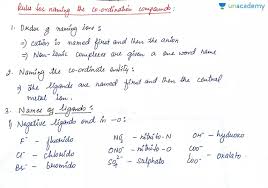 unacademy
Rules for naming the co-ordination compounds:
1. Order of naming ions:
⇒ cation is named first and then the anion
⇒ Non-ionic complexes are given a one word name
2. Naming the co-ordinate entity:
⇒ The ligands are named first and then the central
metal ion.
3. Names of ligands:
i) Negative ligands end in -o:
F⁻ - fluorido NO₂⁻ - nitrito-N OH⁻ - hydroxo
Cl⁻ - chlorido ONO⁻ - nitrito-O COO⁻
Br⁻ - bromido SO₄²⁻ - sulphato COO⁻ - oxalato